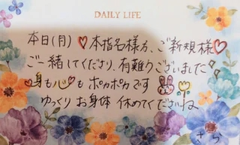 DAILY LIFE
本日(月)♡本指名様方、ご新規様♡
ご一緒してくださり、有難うございました!
♡身も心♡もポカポカです
ゆっくりお身体 休めてくださいね